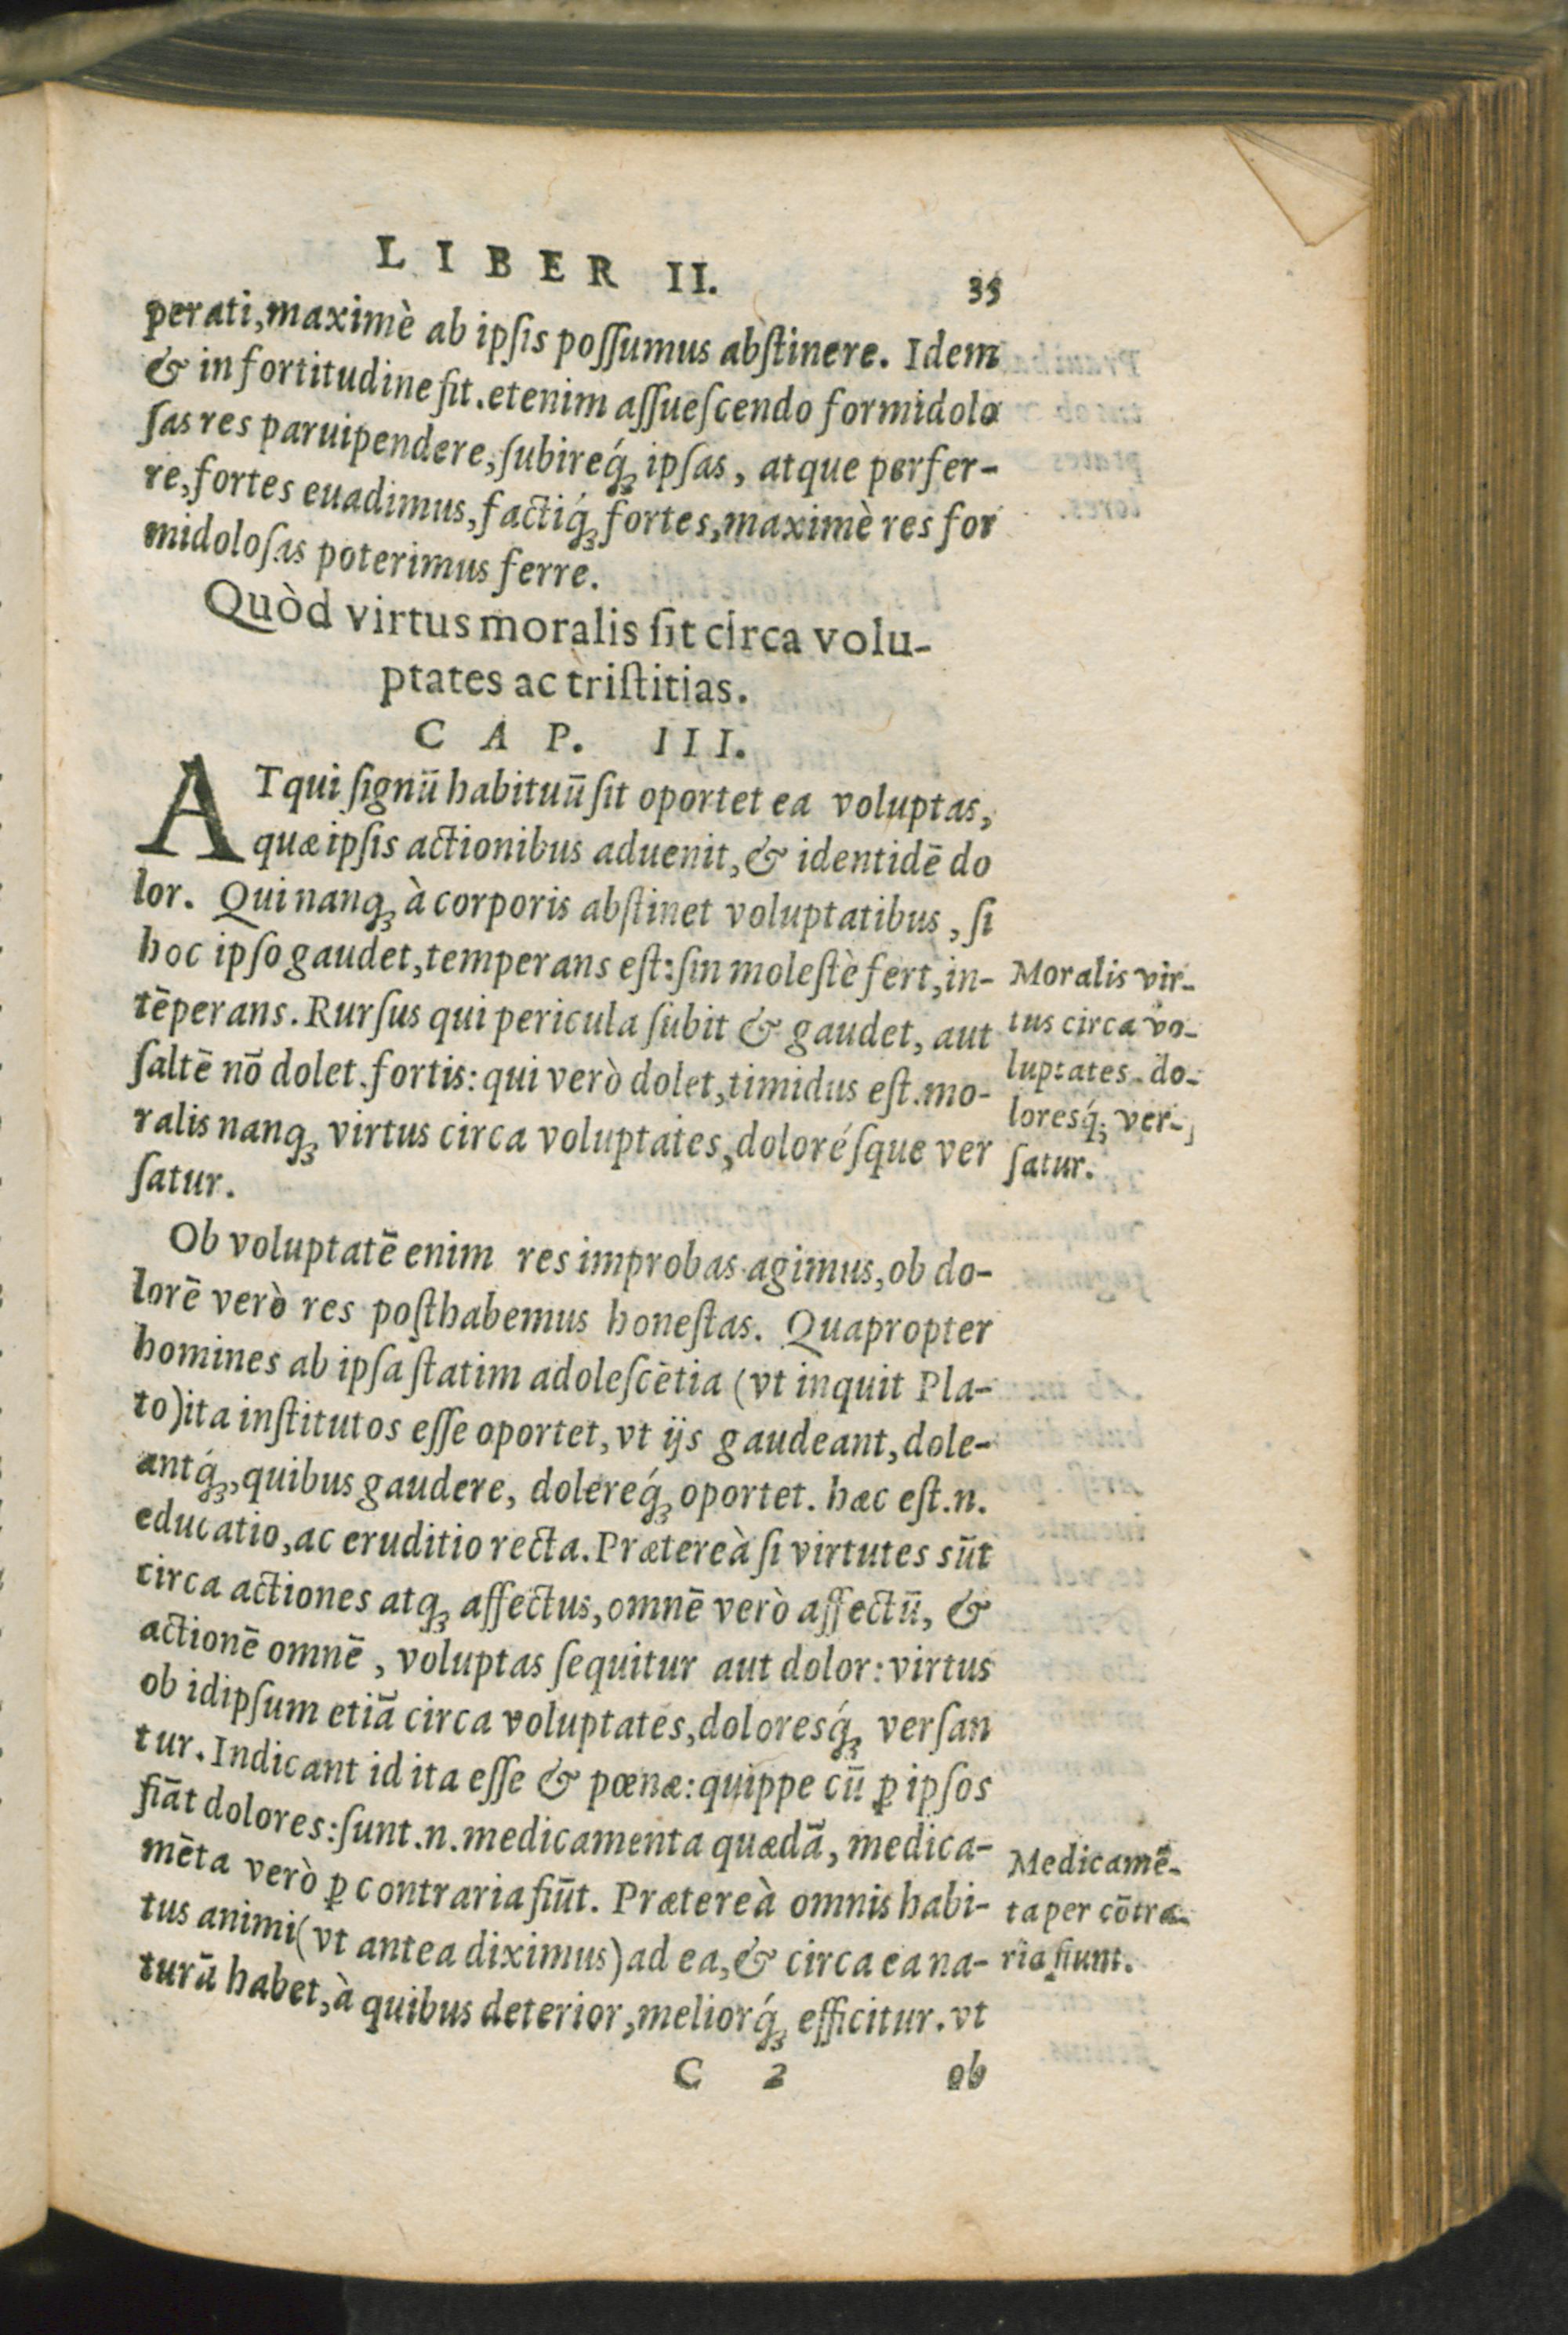 LIBER II. 35
perati, maximè ab ipſis poſſumus abſtinere. Idem
& in fortitudine fit. etenim aſſueſcendo formidolo
ſas res paruipendere, ſubireq́ꝫ ipſas, atque perfer-
re, fortes euadimus, factiq́ꝫ fortes, maximè res for
midoloſas poterimus ferre.
Quòd virtus moralis ſit circa volu-
ptates ac triſtitias.
CAP. III.
ATqui ſignū habituū ſit oportet ea voluptas,
quæ ipſis actionibus aduenit, & identidē do
lor. Qui nanqꝫ à corporis abſtinet voluptatibus, ſi
hoc ipſo gaudet, temperans eſt: ſin moleſtè fert, in-
tēperans. Rurſus qui pericula ſubit & gaudet, aut
ſaltē nō dolet. fortis: qui verò dolet, timidus eſt. mo-
ralis nanqꝫ virtus circa voluptates, doloréſque ver
ſatur.
Moralis vir-
tus circa vo-
luptates do-
loresq́ꝫ ver-
ſatur.
Ob voluptatē enim res improbas agimus, ob do-
lorē verò res poſthabemus honeſtas. Quapropter
homines ab ipſa ſtatim adoleſcētia (vt inquit Pla-
to) ita inſtitutos eſſe oportet, vt ijs gaudeant, dole-
antq́ꝫ, quibus gaudere, dolereq́ꝫ oportet. hæc eſt .n.
educatio, ac eruditio recta. Prætereà ſi virtutes sūt
circa actiones atqꝫ affectus, omnē verò affectū, &
actionē omnē, voluptas ſequitur aut dolor: virtus
ob idipſum etiā circa voluptates, doloresq́ꝫ verſan
tur. Indicant id ita eſſe & pœnæ: quippe cū ꝑ ipſos
fiāt dolores: ſunt .n. medicamenta quædā, medica-
mēta verò ꝑ contraria fiūt. Prætereà omnis habi-
tus animi (vt antea diximus) ad ea, & circa ea na-
turā habet, à quibus deterior, meliorq́ꝫ efficitur. vt
Medicamē-
ta per cōtra-
ria fiunt.
C 2 ob